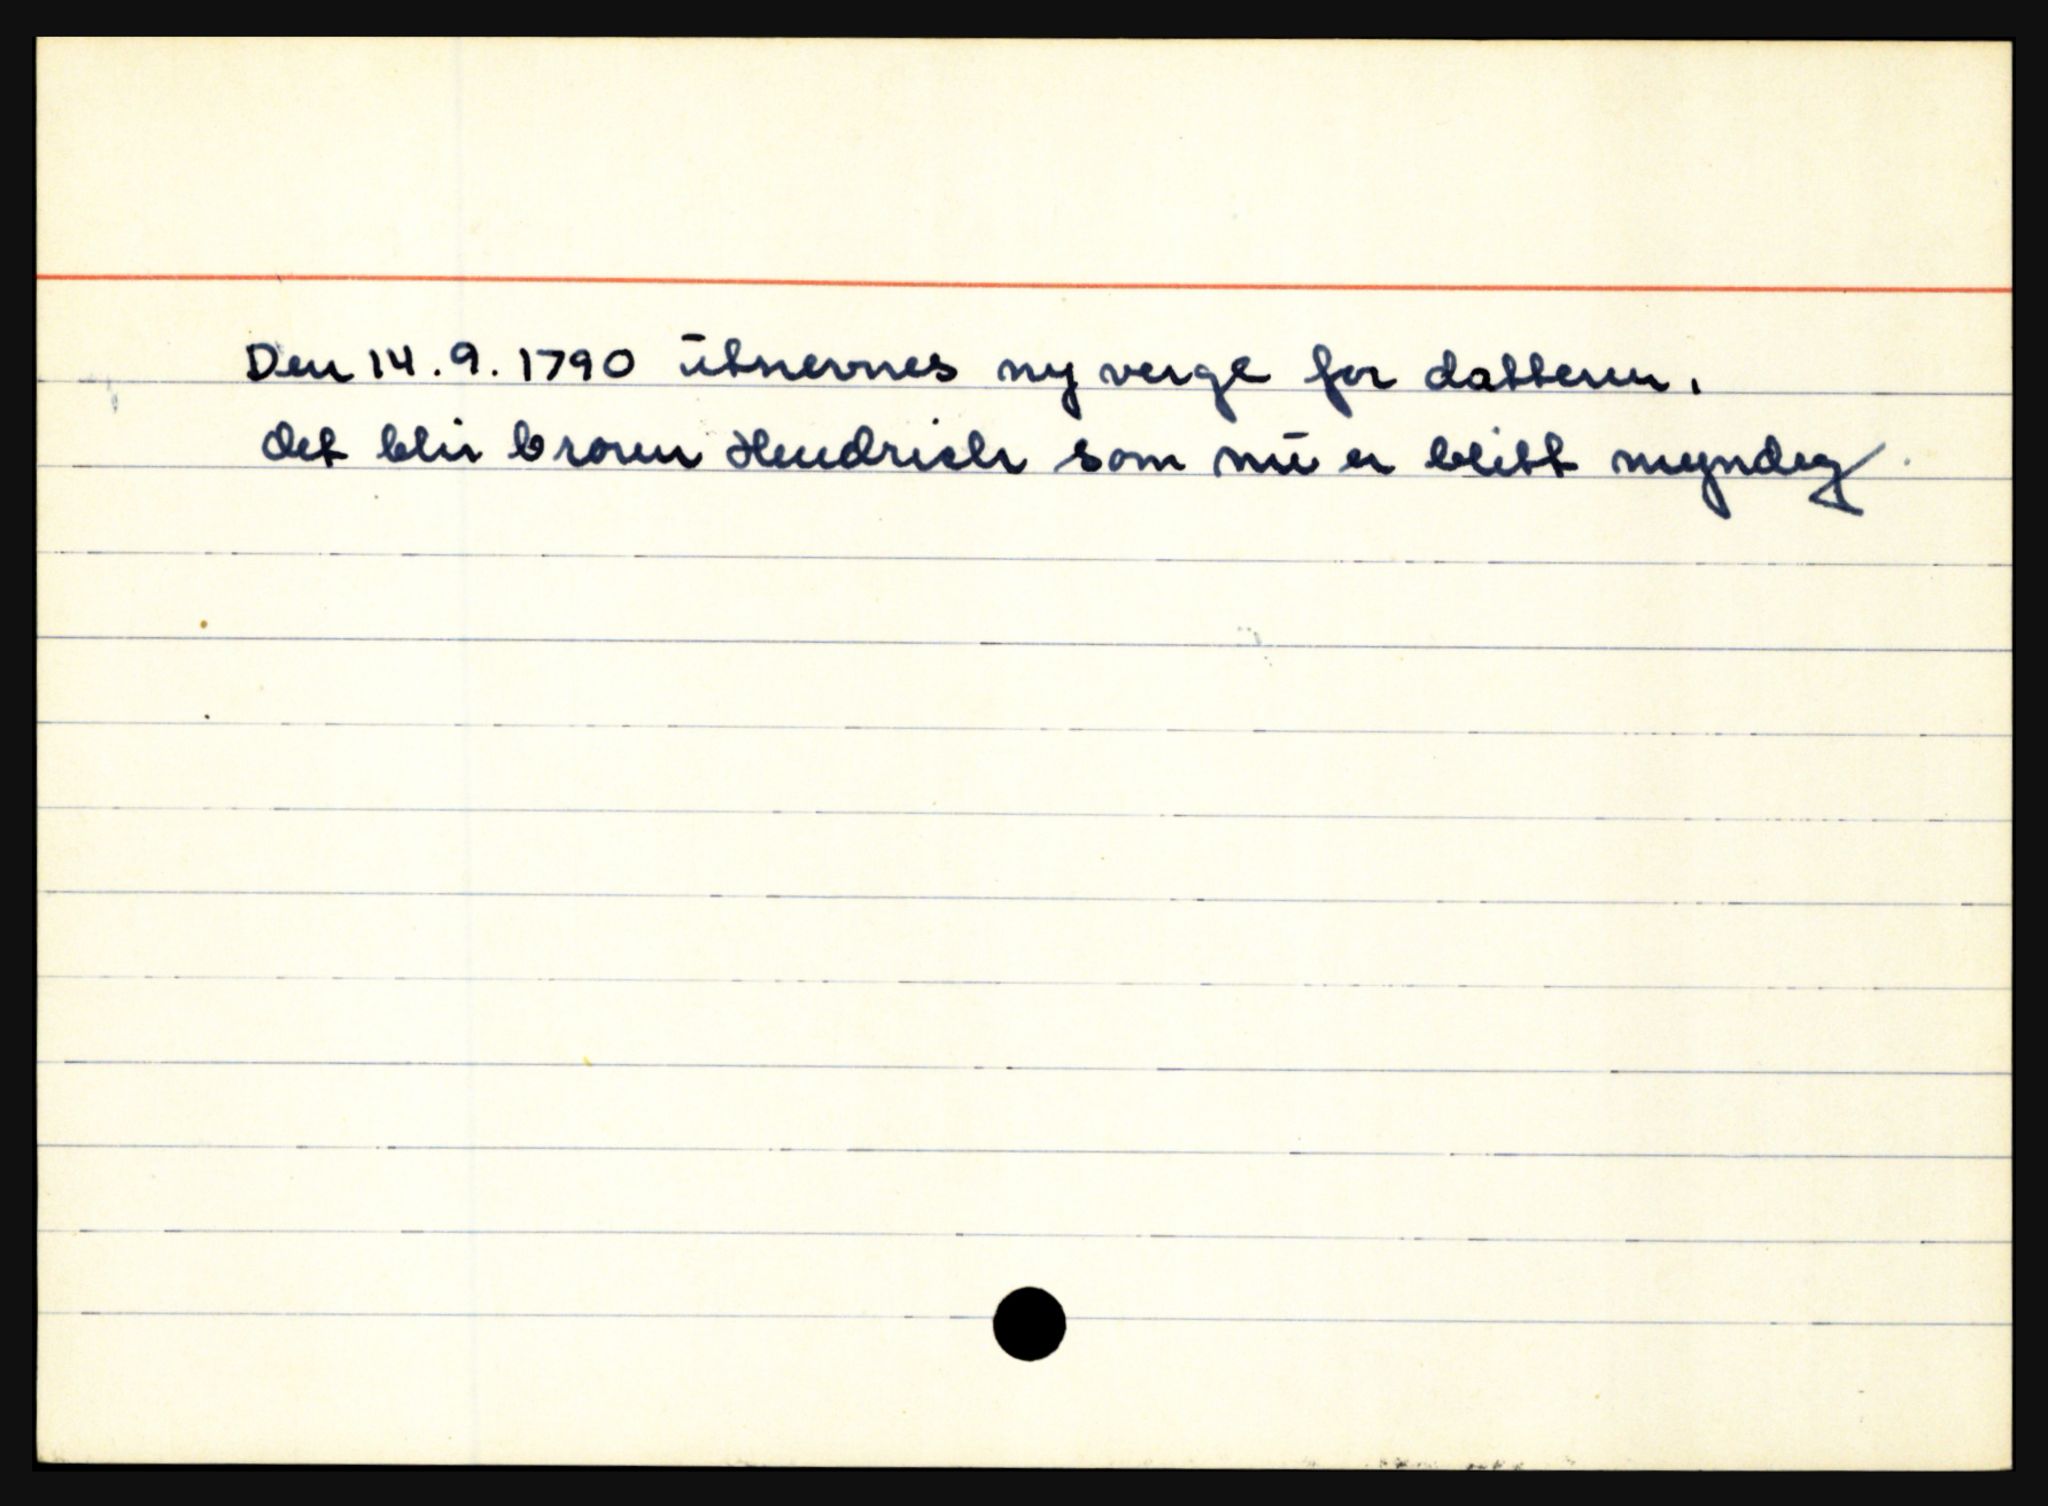 Den 14.9.1790 utnevnes ny verge for datteren.
det blir broren Hendrich som nu er blitt myndig